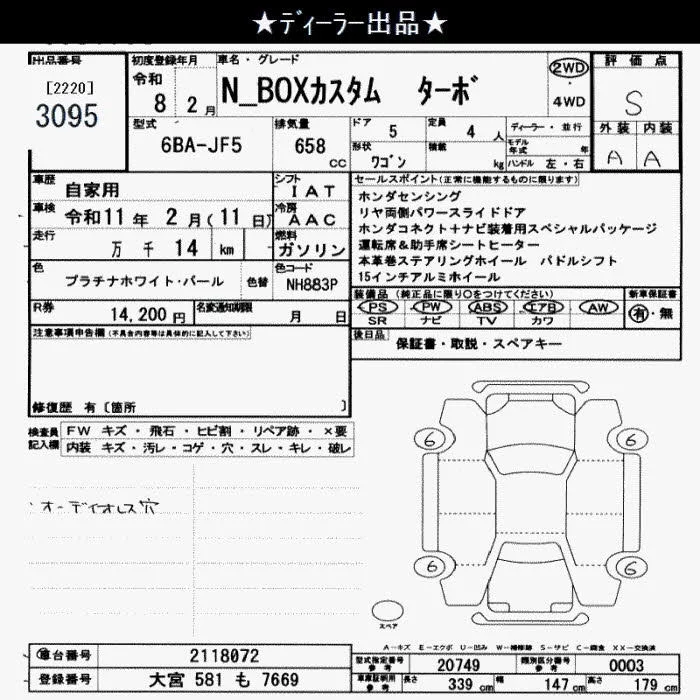 ★ディーラー出品★
出品番号
[2220]
3095
初度登録年月
令和
8 2月
車名・グレード
N_BOXカスタム ターボ
2WD
・
4WD
評価点
S
外装 内装
A A
型式
6BA-JF5
排気量
658 cc
ドア
5
定員
4 人
形状
ワゴン
積載
kg
ディーラー・並行
モデル年式 年
ハンドル 左・右
車歴
自家用
シフト
IAT
車検
令和11年 2月(11日)
冷房
AAC
走行
万 千 14 km
燃料
ガソリン
色
プラチナホワイト・パール
色替
色コード
NH883P
R券
14,200円
名変通知期限
月 日
セールスポイント(正常に機能するものに限ります)
ホンダセンシング
リヤ両側パワースライドドア
ホンダコネクト+ナビ装着用スペシャルパッケージ
運転席&助手席シートヒーター
本革巻ステアリングホイール パドルシフト
15インチアルミホイール
装備品(純正品に限り○をつけてください)
PS PW ABS エアB AW
SR ナビ TV カワ
新車保証書
有・無
後日品
保証書・取説・スペアキー
注意事項申告欄(不具合内容等は具体的に記入して下さい)
修復歴 有〔箇所 〕
検査員記入欄
FW キズ・飛石・ヒビ割・リペア跡・×要
内装 キズ・汚レ・コゲ・穴・スレ・キレ・破レ
オーディオレス穴
6 6
6 6
スペア
A-キズ E-エクボ U-凹み W-補修跡 S-サビ C-腐食 XX-交換済
車台番号
2118072
登録番号
大宮 581 も 7669
型式指定番号
参考
20749
類別区分番号
参考
0003
車庫証明用
参考
長さ 339 cm 幅 147 cm 高さ 179 cm